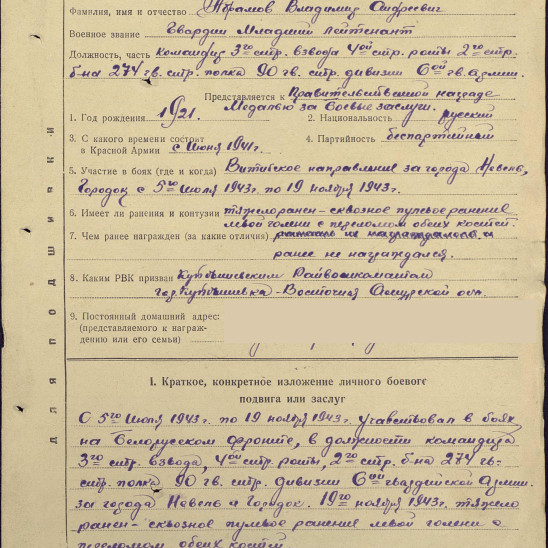 Фамилия, имя и отчество Абрамов Владимир Андреевич
Военное звание Гвардии Младший лейтенант
Должность, часть Командир 3го стр. взвода 4ой стр. роты 2го стр.
б-на 274 гв. стр. полка 90 гв. стр. дивизии 6ой гв. армии.
Представляется к Правительственной награде
Медалью за боевые заслуги.
1. Год рождения 1921. 2. Национальность русский
3. С какого времени состоит
в Красной Армии с Июня 1941г. 4. Партийность беспартийный
5. Участие в боях (где и когда) Витебское направление за города Невель,
Городок с 5го июля 1943г. по 19 ноября 1943г.
6. Имеет ли ранения и контузии тяжелоранен-сквозное пулевое ранение
левой голени с переломом обеих костей.
7. Чем ранее награжден (за какие отличия)
ранее не награждался.
8. Каким РВК призван Куйбышевским Райвоенкоматом
гор. Куйбышевка-Восточная Амурской обл.
9. Постоянный домашний адрес:
(представляемого к награж-
дению или его семьи)
I. Краткое, конкретное изложение личного боевого
подвига или заслуг
С 5го Июля 1943г. по 19 ноября 1943г. участвовал в боях
на Белорусском фронте, в должности командира
3го стр. взвода, 4ой стр. роты, 2го стр. б-на 274 гв.
стр. полка 90 гв. стр. дивизии 6ой гвардейской Армии.
за города Невель и Городок. 19го ноября 1943г. тяжело
ранен- сквозное пулевое ранение левой голени с
переломом обеих костей
ДЛЯ ПОДШИВКИ